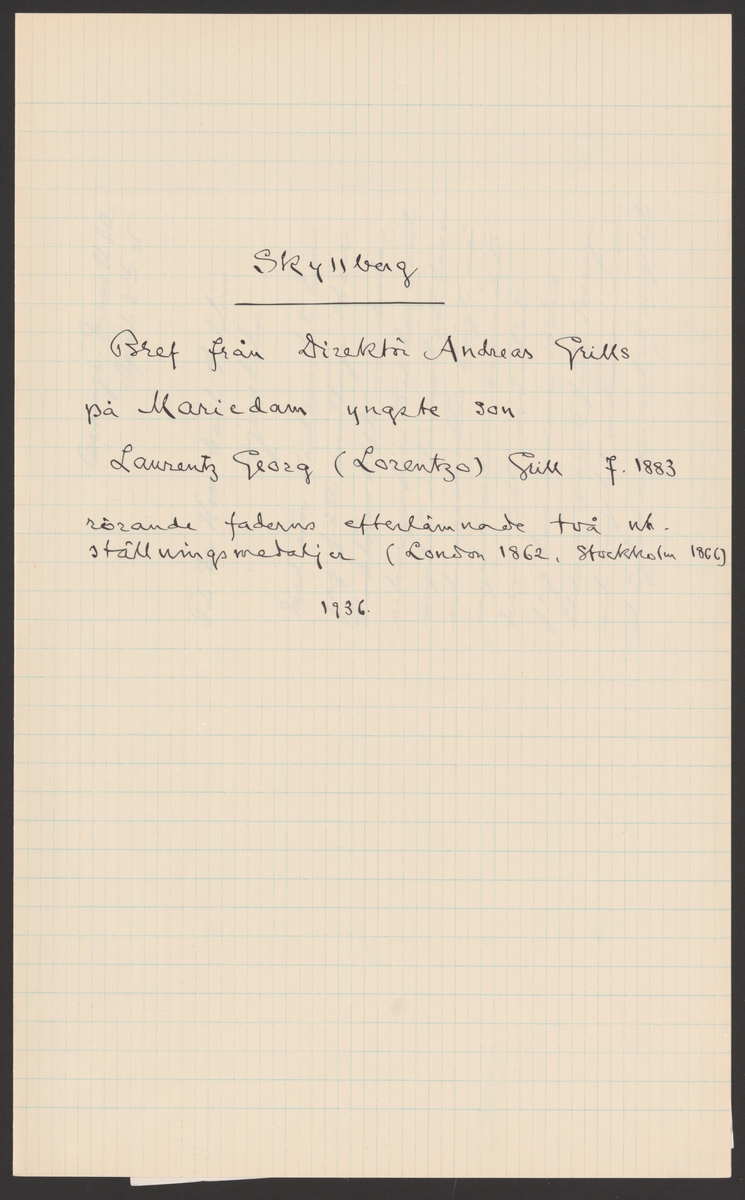 Skyllberg
Bref från Direktör Andreas Grills
på Mariedam yngste son
Laurentz Georg (Lorentzo) Grill f. 1883
rörande faderns efterlämnade två ut-
ställningsmedaljer (London 1862, Stockholm 1866)
1936.